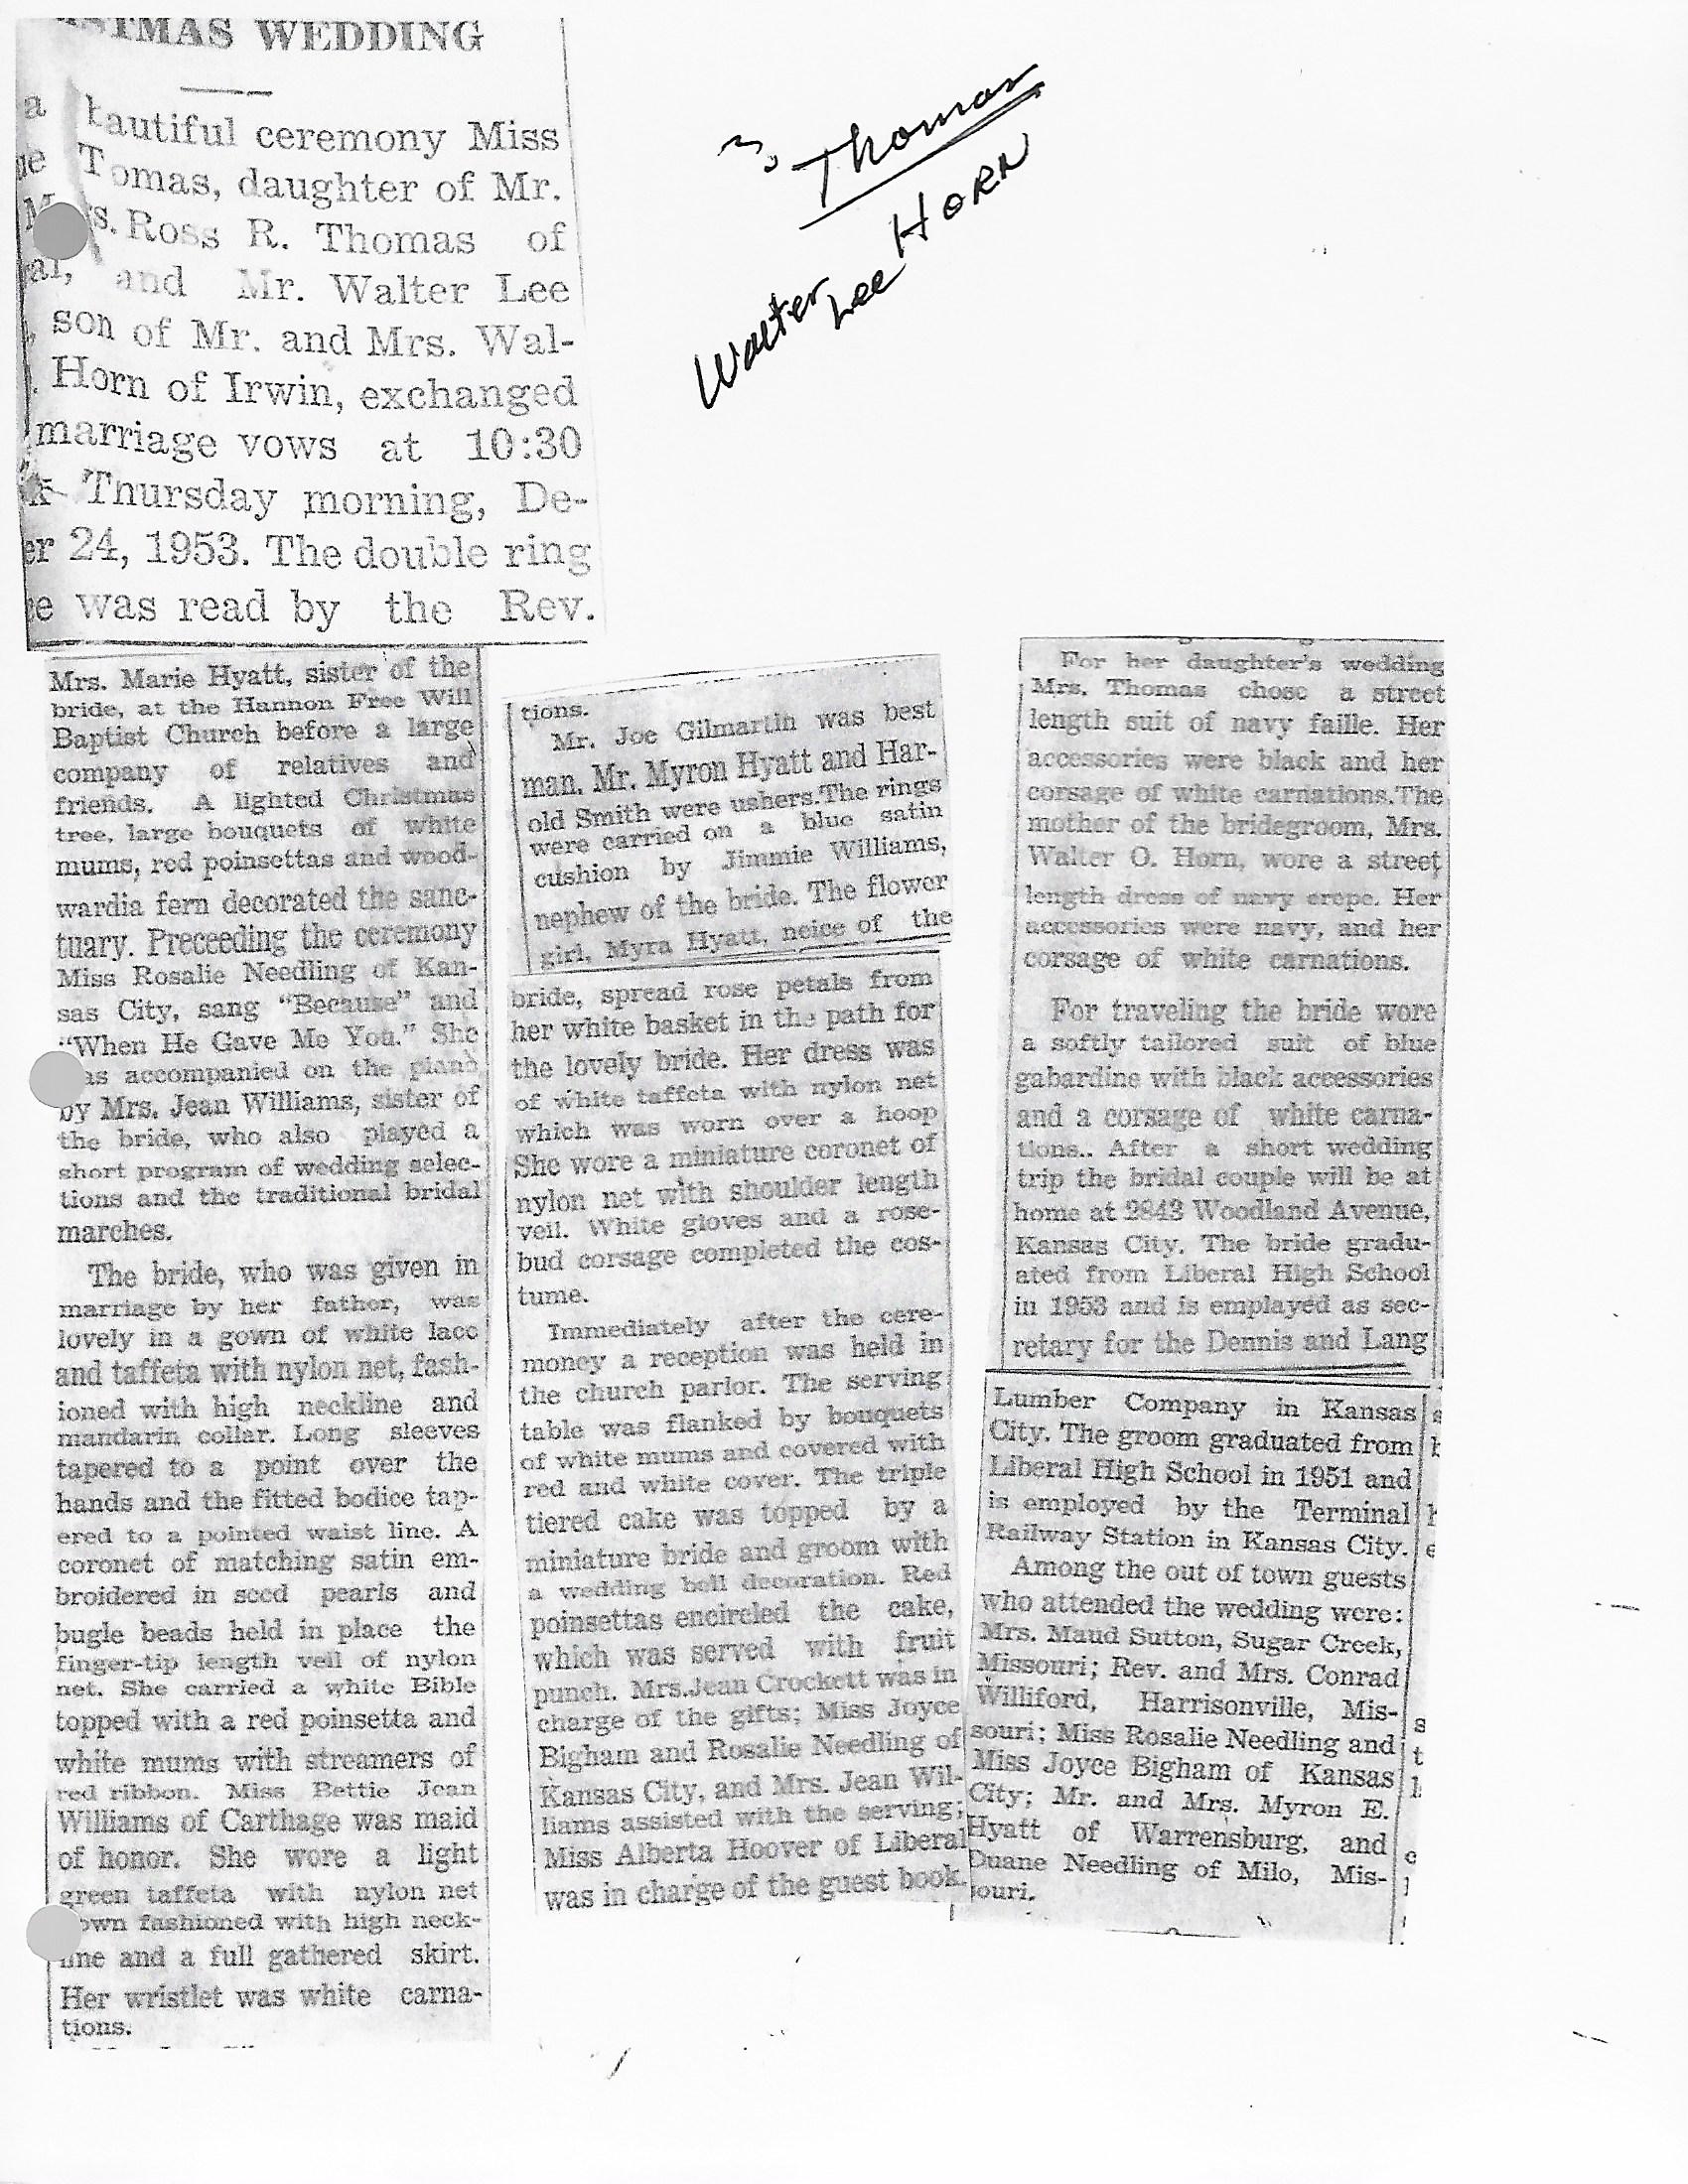 STMAS WEDDING
a autiful ceremony Miss
Tomas, daughter of Mr.
s. Ross R. Thomas of
al, and Mr. Walter Lee
son of Mr. and Mrs. Wal-
Horn of Irwin, exchanged
marriage vows at 10:30
Thursday morning, De-
er 24, 1953. The double ring
e was read by the Rev.
Mrs. Marie Hyatt, sister of the
bride, at the Hannon Free Will
Baptist Church before a large
company of relatives and
friends. A lighted Christmas
tree, large bouquets of white
mums, red poinsettas and wood-
wardia fern decorated the sanc-
tuary. Preceeding the ceremony
Miss Rosalie Needling of Kan-
sas City, sang "Because" and
"When He Gave Me You." She
as accompanied on the piano
by Mrs. Jean Williams, sister of
the bride, who also played a
short program of wedding selec-
tions and the traditional bridal
marches.
The bride, who was given in
marriage by her father, was
lovely in a gown of white lace
and taffeta with nylon net, fash-
ioned with high neckline and
mandarin collar. Long sleeves
tapered to a point over the
hands and the fitted bodice tap-
ered to a pointed waist line. A
coronet of matching satin em-
broidered in seed pearls and
bugle beads held in place the
finger-tip length veil of nylon
net. She carried a white Bible
topped with a red poinsetta and
white mums with streamers of
red ribbon. Miss Bettie Jean
Williams of Carthage was maid
of honor. She wore a light
green taffeta with nylon net
own fashioned with high neck-
ine and a full gathered skirt.
Her wristlet was white carna-
tions.
tions.
Mr. Joe Gilmartin was best
man. Mr. Myron Hyatt and Har-
old Smith were ushers.The rings
were carried on a blue satin
cushion by Jimmie Williams,
nephew of the bride. The flower
girl, Myra Hyatt, neice of the
bride, spread rose petals from
her white basket in the path for
the lovely bride. Her dress was
of white taffeta with nylon net
which was worn over a hoop
She wore a miniature coronet of
nylon net with shoulder length
veil. White gloves and a rose-
bud corsage completed the cos-
tume.
Immediately after the cere-
money a reception was held in
the church parlor. The serving
table was flanked by bouquets
of white mums and covered with
red and white cover. The triple
tiered cake was topped by a
miniature bride and groom with
a wedding bell decoration. Red
poinsettas encircled the cake,
which was served with fruit
punch. Mrs.Jean Crockett was in
charge of the gifts; Miss Joyce
Bigham and Rosalie Needling of
Kansas City, and Mrs. Jean Wil-
liams assisted with the serving;
Miss Alberta Hoover of Liberal
was in charge of the guest book.
Thomas
Walter Lee HORN
For her daughter's wedding
Mrs. Thomas chose a street
length suit of navy faille. Her
accessories were black and her
corsage of white carnations.The
mother of the bridegroom, Mrs.
Walter O. Horn, wore a street
length dress of navy crepe. Her
accessories were navy, and her
corsage of white carnations.
For traveling the bride wore
a softly tailored suit of blue
gabardine with black accessories
and a corsage of white carna-
tions.. After a short wedding
trip the bridal couple will be at
home at 2843 Woodland Avenue,
Kansas City. The bride gradu-
ated from Liberal High School
in 1953 and is employed as sec-
retary for the Dennis and Lang
Lumber Company in Kansas
City. The groom graduated from
Liberal High School in 1951 and
is employed by the Terminal
Railway Station in Kansas City.
Among the out of town guests
who attended the wedding were:
Mrs. Maud Sutton, Sugar Creek,
Missouri; Rev. and Mrs. Conrad
Williford, Harrisonville, Mis-
souri; Miss Rosalie Needling and
Miss Joyce Bigham of Kansas
City; Mr. and Mrs. Myron E.
Hyatt of Warrensburg, and
Duane Needling of Milo, Mis-
souri.